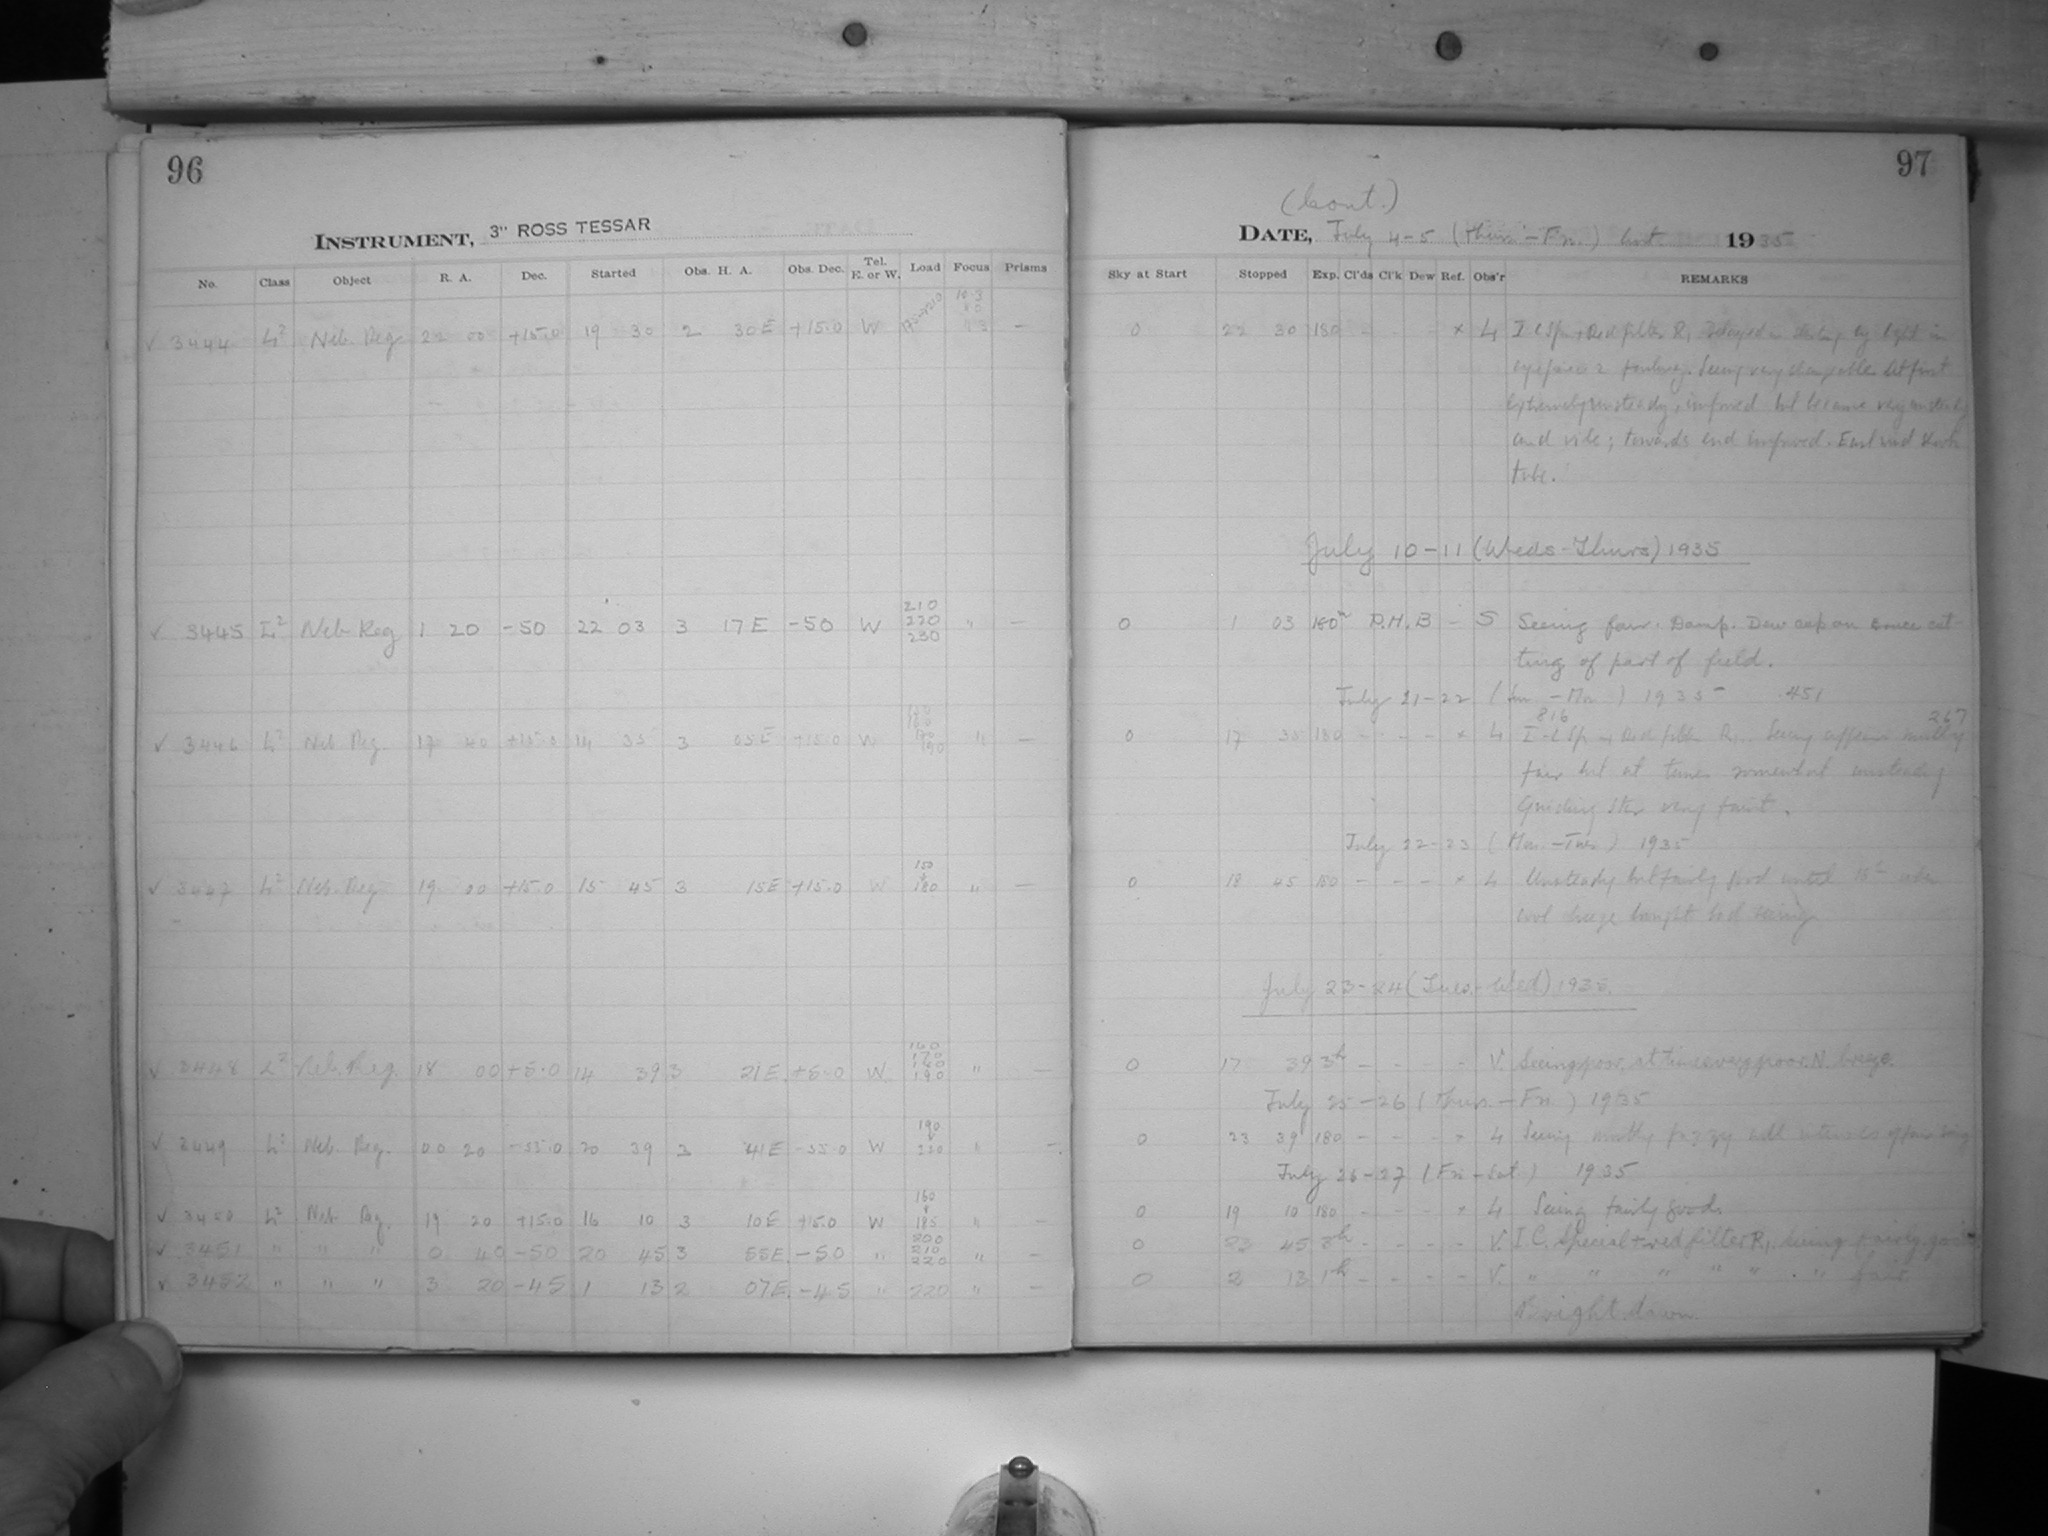 96
INSTRUMENT, 3" ROSS TESSAR
No. Class Object R. A. Dec. Started Obs. H. A. Obs. Dec. Tel. E. or W. Load Focus Prisms
✓ 3444 L² Neb. Reg. 22 00 +15.0 19 30 2 30E +15.0 W –
210
✓ 3445 L² Neb Reg 1 20 -50 22 03 3 17E -50 W 220 " –
230
✓ 3446 L² Neb. Reg. 17 40 +15.0 14 35 3 05E +15.0 W 190 " –
150
✓ 3447 L² Neb. Reg. 19 00 +15.0 15 45 3 15E +15.0 W 180 " –
160
170
✓ 3448 L² Neb. Reg. 18 00 +5.0 14 39 3 21E. +5.0 W 190 " –
190
✓ 3449 L² Neb. Reg. 00 20 -55.0 20 39 3 41E -55.0 W 230 " –
160
✓ 3450 L² Neb. Reg. 19 20 +15.0 16 10 3 10E +15.0 W 185 " –
200
✓ 3451 " " " 0 40 -50 20 45 3 55E. -50 " 210 " –
220
✓ 3452 " " " 3 20 -45 1 13 2 07E. -45 " 220 " –
97
(Cont.)
DATE, July 4-5 (Thurs-Fri.) 1935
Sky at Start Stopped Exp. Cl'ds Cl'k Dew Ref. Obs'r REMARKS
0 22 30 180 - - - x L I C Sp. + Red filter R₁ Delayed in starting by light in
eyepiece Seeing very changeable. At first
extremely unsteady, improved but became very unsteady
and vile; towards end improved. East wind shook
tube.
July 10-11 (Weds-Thurs) 1935
0 1 03 180ᵐ R.M.B - S Seeing fair. Damp. Dew cap on Bruce cut
ting of part of field.
July 21-22 (Sun-Mon) 1935 .451
816 267
0 17 35 180 - - - x L I-C Sp + Red filter R₁. Seeing appears mostly
fair but at times somewhat unsteady
Guiding star very faint.
July 22-23 (Mon.-Tues) 1935
0 18 45 180 - - - x L Unsteady but fairly good until when
cool breeze brought bad seeing
July 23-24 (Tues.-Wed) 1935.
0 17 39 3ʰ - - - - V. Seeing poor, at times very poor. N. breeze.
July 25-26 (Thurs.-Fri) 1935
0 23 39 180 - - - x L Seeing mostly fuzzy with intervals of fair seeing
July 26-27 (Fri-Sat.) 1935
0 19 10 180 - - - x L Seeing fairly good.
0 23 45 3ʰ - - - - V. I C. Special + red filter R₁. Seeing fairly good
0 2 13 1ʰ - - - - V. " " " " " " fair
Bright dawn.